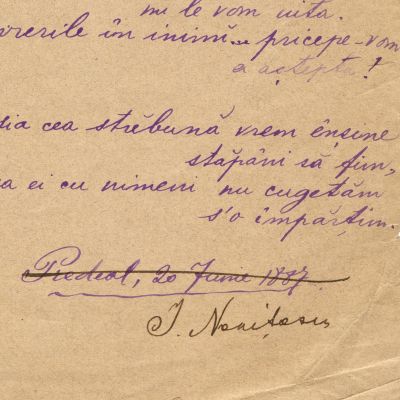 nu le vom uita.
vrerile în inimi... pricepe-vom
aștepta!
dia cea străbună vrem ênșine
stăpâni să fim,
a ei cu nimeni nu cugetăm
s'o împărțim.
Predeal, 20 Iunie 1887.
I. Nenițescu